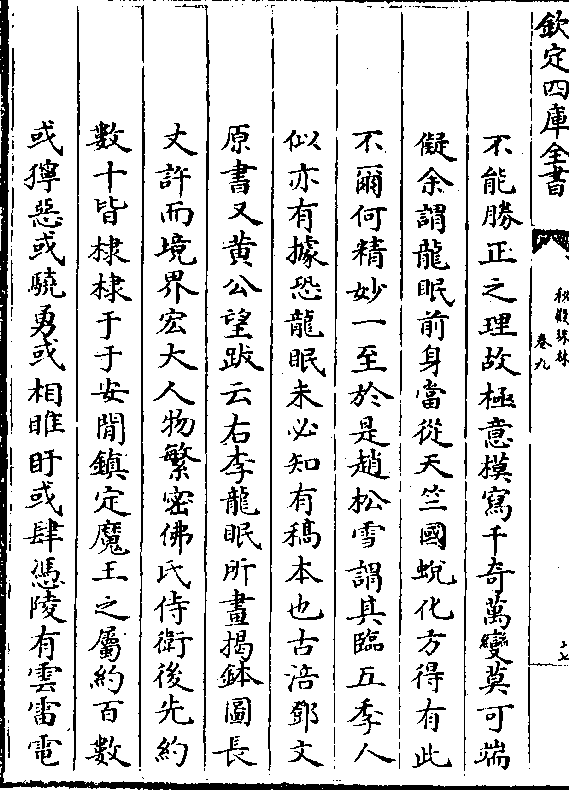 欽定四庫全書
秘殿珠林
卷九
不能勝正之理故極意模寫千奇萬變莫可端
儗余謂龍眠前身當從天竺國蛻化方得有此
不爾何精妙一至於是趙松雪謂其臨五季人
似亦有據恐龍眠未必知有稿本也古涪鄧文
原書又黄公望跋云右李龍眠所畫揭鉢圖長
丈許而境界宏大人物繁密佛氏侍衛後先約
數十皆棣棣于于安閒鎮定魔王之屬約百數
或獰惡或驍勇或相睢盱或肆憑陵有雲雷電